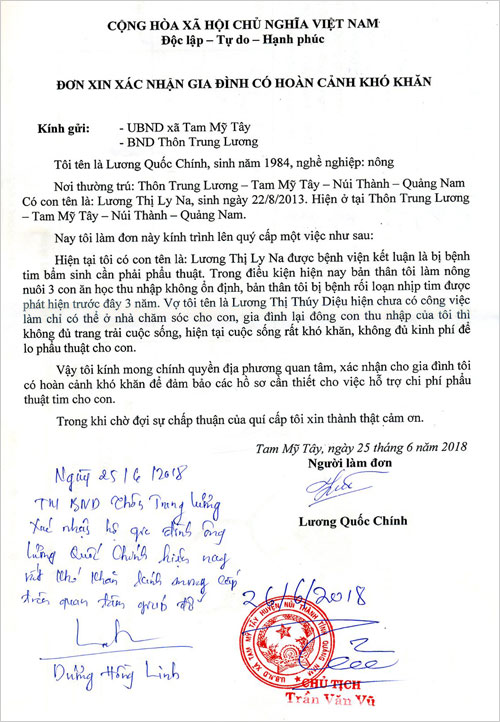 CỘNG HÒA XÃ HỘI CHỦ NGHĨA VIỆT NAM
Độc lập – Tự do – Hạnh phúc
ĐƠN XIN XÁC NHẬN GIA ĐÌNH CÓ HOÀN CẢNH KHÓ KHĂN
Kính gửi: - UBND xã Tam Mỹ Tây
- BND Thôn Trung Lương
Tôi tên là Lương Quốc Chính, sinh năm 1984, nghề nghiệp: nông
Nơi thường trú: Thôn Trung Lương – Tam Mỹ Tây – Núi Thành – Quảng Nam
Có con tên là: Lương Thị Ly Na, sinh ngày 22/8/2013. Hiện ở tại Thôn Trung Lương
– Tam Mỹ Tây – Núi Thành – Quảng Nam.
Nay tôi làm đơn này kính trình lên quý cấp một việc như sau:
Hiện tại tôi có con tên là: Lương Thị Ly Na được bệnh viện kết luận là bị bệnh
tim bẩm sinh cần phải phẩu thuật. Trong điều kiện hiện nay bản thân tôi làm nông
nuôi 3 con ăn học thu nhập không ổn định, bản thân tôi bị bệnh rối loạn nhịp tim được
phát hiện trước đây 3 năm. Vợ tôi tên là Lương Thị Thúy Diệu hiện chưa có công việc
làm chỉ có thể ở nhà chăm sóc cho con, gia đình lại đông con thu nhập của tôi thì
không đủ trang trải cuộc sống, hiện tại cuộc sống rất khó khăn, không đủ kinh phí để
lo phẩu thuật cho con.
Vậy tôi kính mong chính quyền địa phương quan tâm, xác nhận cho gia đình tôi
có hoàn cảnh khó khăn để đảm bảo các hồ sơ cần thiết cho việc hỗ trợ chi phí phẩu
thuật tim cho con.
Trong khi chờ đợi sự chấp thuận của quí cấp tôi xin thành thật cảm ơn.
Tam Mỹ Tây, ngày 25 tháng 6 năm 2018
Người làm đơn
Lương Quốc Chính
Ngày 25/6/2018
TM BND thôn Trung Lương
Xác nhận hộ gia đình ông
Lương Quốc Chính hiện nay
rất khó khăn kính mong cấp
trên quan tâm giúp đỡ
Dương Hồng Linh
26/6/2018
U.B.N.D XÃ TAM MỸ TÂY HUYỆN NÚI THÀNH TỈNH QUẢNG NAM
CHỦ TỊCH
Trần Văn Vũ